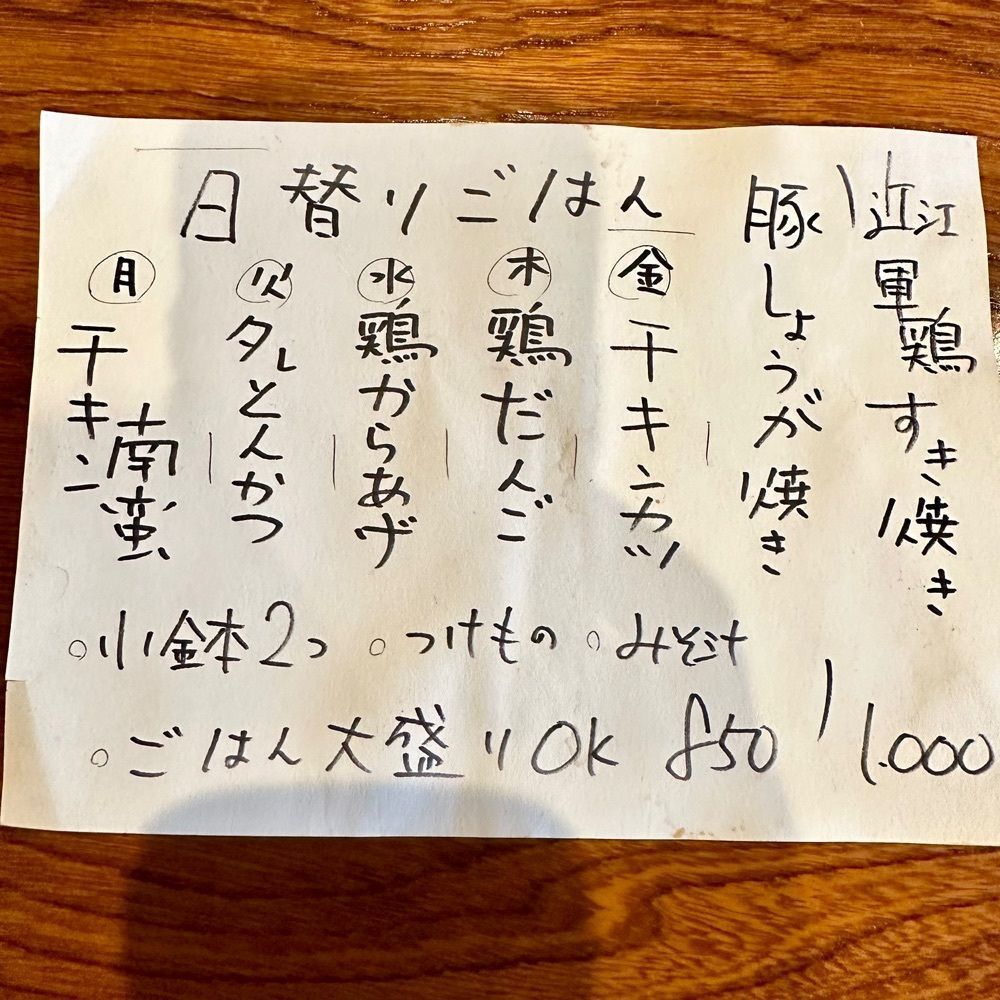 日替りごはん
㊊ チキン南蛮
㊋ タレとんかつ
㊌ 鶏からあげ
㊍ 鶏だんご
㊎ チキンカツ
豚しょうが焼き
近江軍鶏すき焼き
○小鉢2つ ○つけもの ○みそ汁
○ごはん大盛りOK 850 1.000